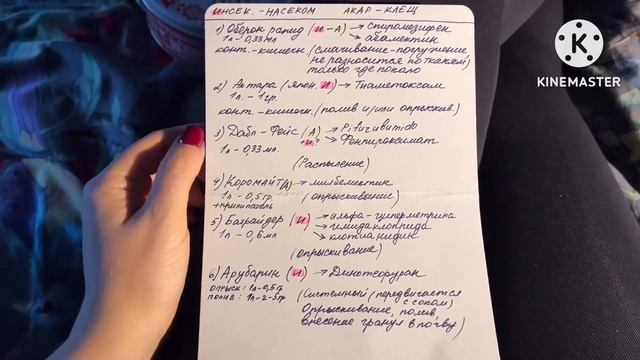 ИНСЕК. - НАСЕКОМ АКАР - КЛЕЩ
1) Оберон рапид (И - А) → спиромезифен
1л - 0,33мл → абамектин
конт. - кишечн. (смачивание - погружение
не разносится по тканям
только где попало
2) Актара (япон. И) → Тиаметоксам
1л. - 1гр.
конт - кишечн. (полив и/или опрысков.)
3) Дабл - Фейс (А) → Pifluvubumido
+И? → Фенпироксимат
1л - 0,33мл.
(Распыление)
4) Коромайт (А) → милбемектин
1л - 0,5гр (опрыскивание)
+прилипатель
5) Батрайдер (И) → альфа - циперметрина
1л - 0,6мл → имидаклоприда
→ клотианидин
(опрыскивание)
6) Арубарин (И) → Динотефуран
опрыск: 1л-0,5г
полив: 1л-2-5гр (Системный (передвигается
с соком)
Опрыскивание, полив,
внесение гранул в почву)
KINEMASTER